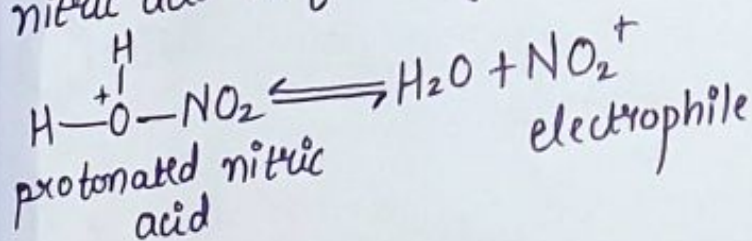 H
H—O⁺—NO₂ ⇌ H₂O + NO₂⁺
protonated nitric
acid
electrophile